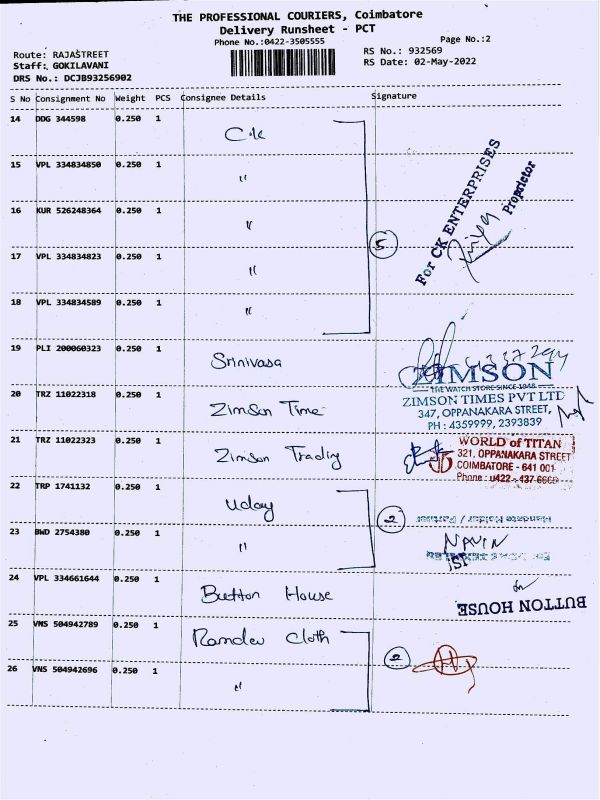 THE PROFESSIONAL COURIERS, Coimbatore
Delivery Runsheet - PCT
Phone No.:0422-3505555
Page No.:2
Route: RAJASTREET
RS No.: 932569
Staff: GOKILAVANI
RS Date: 02-May-2022
DRS No.: DCJB93256902
S No Consignment No Weight PCS Consignee Details Signature
14 DDG 344598 0.250 1 C.k
15 VPL 334834850 0.250 1 "
16 KUR 526248364 0.250 1 "
17 VPL 334834823 0.250 1 "
18 VPL 334834589 0.250 1 "
5
For CK ENTERPRISES
Proprietor
19 PLI 200060323 0.250 1 Srinivasa
20 TRZ 11022318 0.250 1 Zimson Time
ZIMSON
THE WATCH STORE SINCE 1948
ZIMSON TIMES PVT LTD
347, OPPANAKARA STREET,
PH : 4359999, 2393839
21 TRZ 11022323 0.250 1 Zimson Trading
WORLD of TITAN
321, OPPANAKARA STREET
COIMBATORE - 641 001
Phone : 0422 - 437 6660
22 TRP 1741132 0.250 1 Uday
2
23 BWD 2754380 0.250 1 "
NAVIN
24 VPL 334661644 0.250 1 Button House
BUTTON HOUSE
25 VNS 504942789 0.250 1 Ramdev Cloth
2
26 VNS 504942696 0.250 1 "